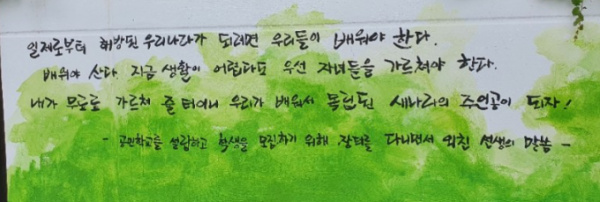 일제로부터 해방된 우리나라가 되려면 우리들이 배워야 한다.
배워야 산다. 지금 생활이 어렵다고 우선 자녀들을 가르쳐야 한다.
내가 무료로 가르쳐 줄 터이니 우리가 배워서 독립된 새나라의 주인공이 되자!
- 공민학교를 설립하고 학생을 모집하기 위해 장터를 다니면서 외친 선생의 말씀 -